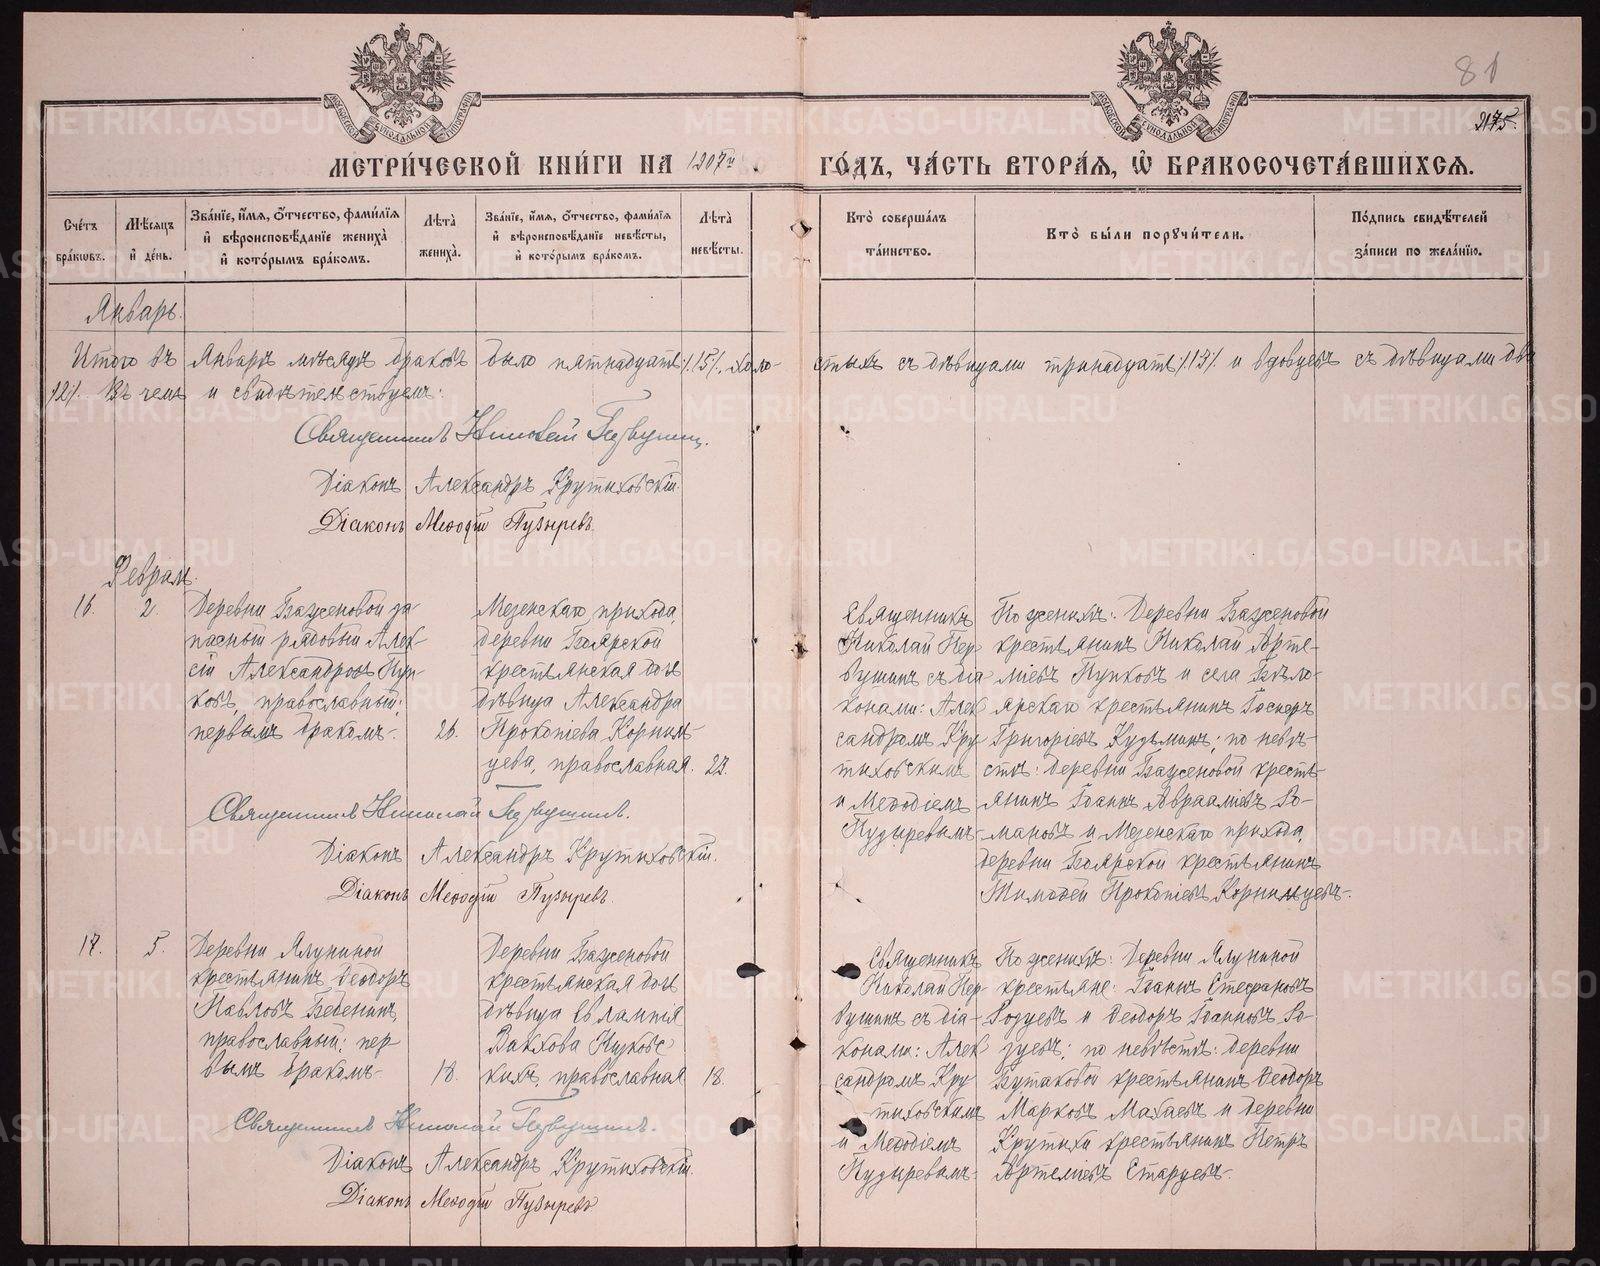 81
2175.
МЕТРИ́ЧЕСКОЙ КНИ́ГИ НА 1907й ГО́ДЪ, ЧА́СТЬ ВТОРА́Я, Ѽ БРАКОСОЧЕТА́ВШИХСЯ.
Сче́тъ бра́кѡвъ.
Мѣ́сѧцъ и҆ де́нь.
Зва́нїе, и҆́мѧ, ѻ҆́тчество, фами́лїѧ и҆ вѣроисповѣ́данїе жениха̀ и҆ кото́рымъ бра́комъ.
Лѣ́та̀ жениха̀.
Зва́нїе, и҆́мѧ, ѻ҆́тчество, фами́лїѧ и҆ вѣроисповѣ́данїе невѣ́сты, и҆ кото́рымъ бра́комъ.
Лѣ́та̀ невѣ́сты.
Кто̀ соверша́лъ та́инство.
Кто̀ бы́ли порꙋчи́тели.
По́дпись свидѣ́телей за́писи по жела́нїю.
Январь.
Итого въ Январѣ мѣсяцѣ браковъ было пятнадцать /15/, холо- стыхъ съ дѣвицами тринадцать /13/ и вдовцевъ съ дѣвицами два
/2/. Въ чемъ и свидѣтельствуемъ:
Священникъ Николай Первушинъ.
Діаконъ Александръ Крутиховскій.
Діаконъ Меѳодій Пузыревъ.
Февраль.
16.
2.
Деревни Баженовой за-
пасный рядовый Алек-
сій Александровъ Пуп-
ковъ, православный;
первымъ бракомъ.
26.
Мезенскаго прихода,
деревни Боярской
крестьянская дочь
дѣвица Александра
Прокопіева Корниль-
цева, православная.
22.
Священникъ
Николай Пер-
вушинъ съ діа-
конами: Алек-
сандромъ Кру-
тиховскимъ
и Меѳодіемъ
Пузыревымъ.
По женихѣ: Деревни Баженовой
крестьянинъ Николай Арте-
міевъ Пупковъ и села Бѣло-
ярскаго крестьянинъ
Григоріевъ Кузьминъ; по невѣ-
стѣ: деревни Баженовой кресть-
янинъ Іоаннъ Авраамiевъ Ро-
мановъ и Мезенскаго прихода,
деревни Боярской крестьянинъ
Тимоѳей Прокопіевъ Корнильцевъ.
Священникъ Николай Первушинъ.
Діаконъ Александръ Крутиховскій.
Діаконъ Меѳодій Пузыревъ.
17.
5.
Деревни Ялуниной
крестьянинъ Ѳеодоръ
Павловъ Бебенинъ,
православный; пер-
вымъ бракомъ.
18.
Деревни Баженовой
крестьянская дочь
дѣвица Евлампія
православная
18.
Священникъ
Николай Пер-
вушинъ съ діа-
конами: Алек-
сандромъ Кру-
тиховскимъ
и Меѳодіемъ
Пузыревымъ.
По женихѣ: Деревни Ялуниной
крестьяне: Іоаннъ Стефановъ
и Ѳеодоръ Іоанновъ
по невѣстѣ: деревни
Бутаковой крестьянинъ Ѳеодоръ
Марковъ и деревни
Крутихи крестьянинъ Петръ
Артеміевъ Старцевъ.
Священникъ Николай Первушинъ.
Діаконъ Александръ Крутиховскій.
Діаконъ Меѳодій Пузыревъ